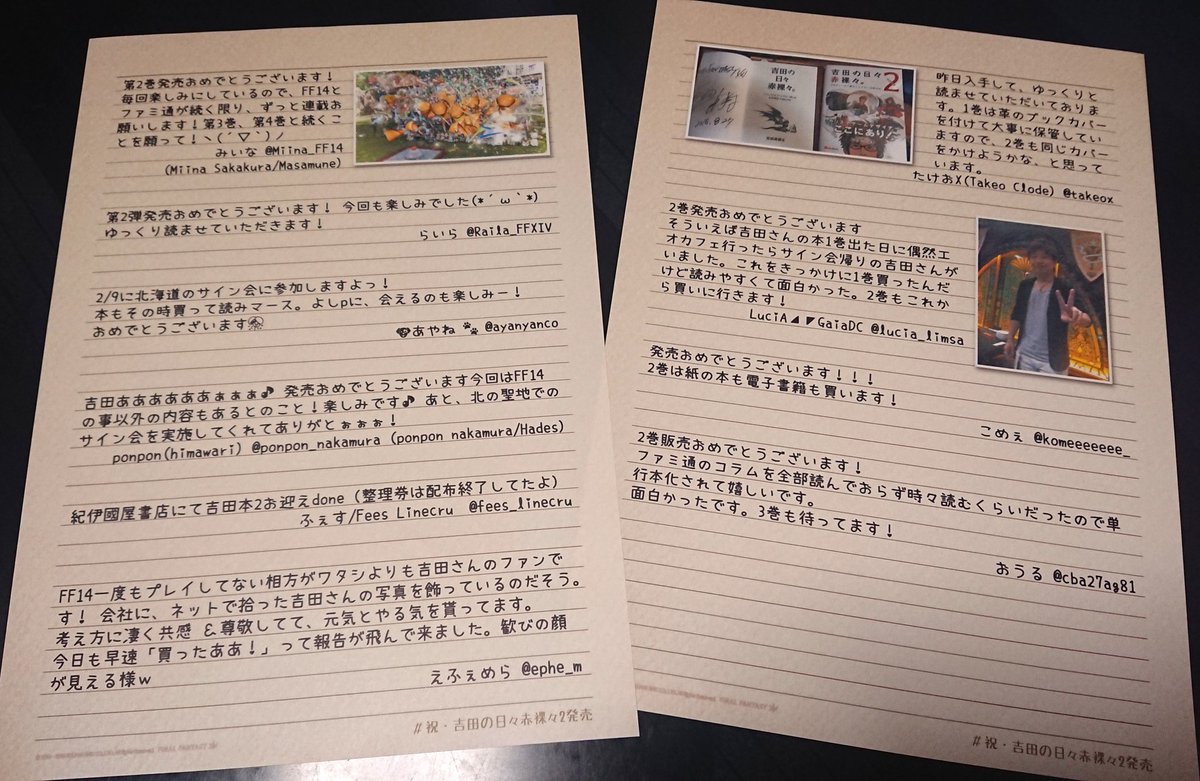 第2巻発売おめでとうございます!
毎回楽しみにしているので、FF14と
ファミ通が続く限り、ずっと連載お
願いします!第3巻、第4巻と続くこ
とを願って!ヽ(´▽`)ノ
みいな @Miina_FF14
(Miina Sakakura/Masamune)
第2弾発売おめでとうございます! 今回も楽しみでした(*´ω`*)
ゆっくり読ませていただきます!
らいら @Raila_FFXIV
2/9に北海道のサイン会に参加しますよっ!
本もその時買って読みマース。よしpに、会えるのも楽しみー!
おめでとうございます
あやね🐾 @ayanyanco
吉田ああああああぁぁぁ♪ 発売おめでとうございます今回はFF14
の事以外の内容もあるとのこと!楽しみです♪ あと、北の聖地での
サイン会を実施してくれてありがとぉぉぉ!
ponpon(himawari) @ponpon_nakamura (ponpon nakamura/Hades)
紀伊國屋書店にて吉田本2お迎えdone (整理券は配布終了してたよ)
ふぇす/Fees Linecru @fees_linecru
FF14一度もプレイしてない相方がワタシよりも吉田さんのファンで
す! 会社に、ネットで拾った吉田さんの写真を飾っているのだそう。
考え方に凄く共感 &尊敬してて、元気とやる気を貰ってます。
今日も早速「買ったああ!」って報告が飛んで来ました。歓びの顔
が見える様w
えふぇめら @ephe_m
#祝・吉田の日々赤裸々2発売
FINAL FANTASY
吉田の
日々
赤裸々。
吉田の日々
赤裸々。
2
ここにあり!
昨日入手して、ゆっくりと
読ませていただいておりま
す。1巻は革のブックカバー
を付けて大事に保管してい
ますので、2巻も同じカバー
をかけようかな、と思って
います。
たけおX(Takeo Clode) @takeox
2巻発売おめでとうございます
そういえば吉田さんの本1巻出た日に偶然エ
オカフェ行ったらサイン会帰りの吉田さんが
いました。これをきっかけに1巻買ったんだ
けど読みやすくて面白かった。2巻もこれか
ら買いに行きます!
LuciA◢◤GaiaDC @lucia_limsa
発売おめでとうございます!!!
2巻は紙の本も電子書籍も買います!
こめぇ @komeeeeeee_
2巻販売おめでとうございます!
ファミ通のコラムを全部読んでおらず時々読むくらいだったので単
行本化されて嬉しいです。
面白かったです。3巻も待ってます!
おうる @cba27ag81
#祝・吉田の日々赤裸々2発売
FINAL FANTASY